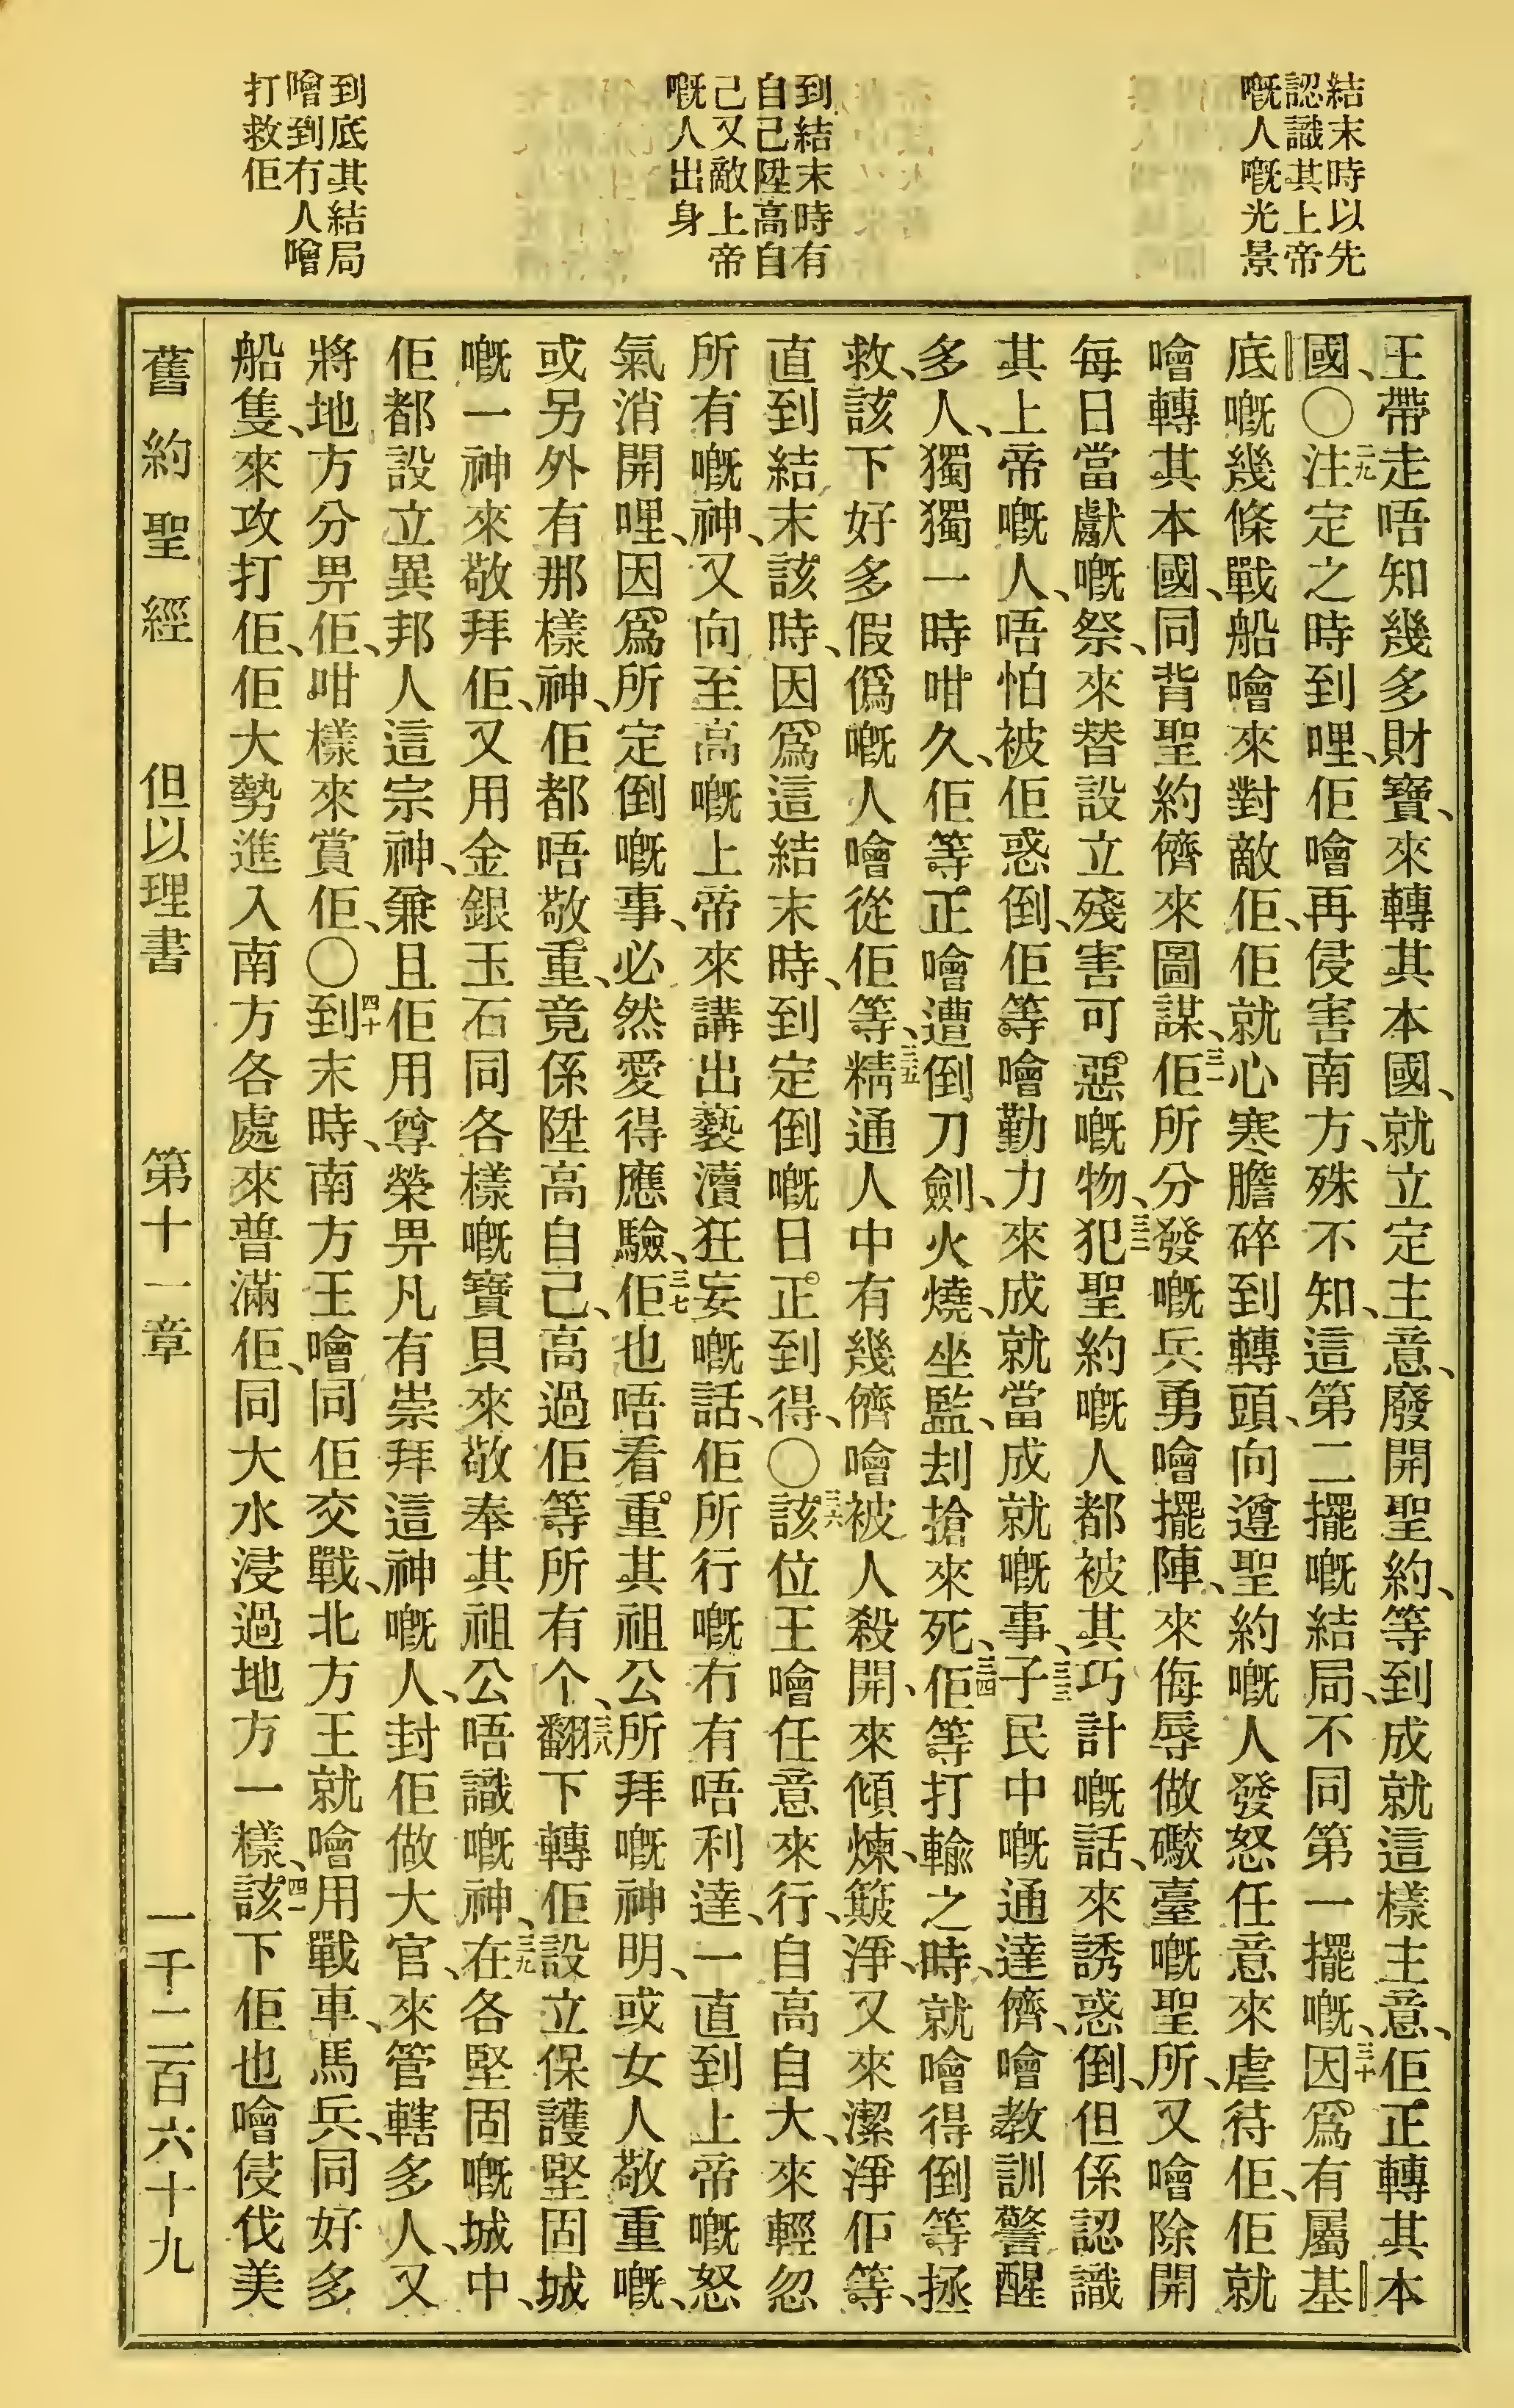 結末時以先
認識其上帝
嘅人嘅光景
到結末時有
自己陞高自
己又敵上帝
嘅人出身
到底其結局
噲到冇人噲
打救佢
王帶走唔知幾多財寶、來轉其本國、就立定主意、廢開聖約、等到成就這樣主意、佢正轉其本
國、〇二九注定之時到哩、佢噲再侵害南方、殊不知、這第二擺嘅結局、不同第一擺嘅、三十因爲有屬基
底嘅幾條戰船噲來對敵佢、佢就心寒膽碎到轉頭、向遵聖約嘅人發怒任意來虐待佢、佢就
噲轉其本國、同背聖約儕來圖謀、三一佢所分發嘅兵勇噲擺陣、來侮辱做礮臺嘅聖所、又噲除開
每日當獻嘅祭、來替設立殘害可惡嘅物、三二犯聖約嘅人都被其巧計嘅話、來誘惑倒、但係認識
其上帝嘅人、唔怕被佢惑倒、佢等噲勤力來成就當成就嘅事、三三子民中嘅通達儕、噲教訓警醒
多人、獨獨一時咁久、佢等正噲遭倒刀劍、火燒、坐監、刦搶來死、三四佢等打輸之時、就噲得倒等拯
救、該下好多假僞嘅人噲從佢等、三五精通人中有幾儕噲被人殺開、來傾煉、簸淨、又來潔淨佢等、
直到結末該時、因爲這結末時、到定倒嘅日正到得、〇三六該位王噲任意來行、自高自大、來輕忽
所有嘅神、又向至高嘅上帝來講出褻瀆狂妄嘅話、佢所行嘅冇有唔利達、一直到上帝嘅怒
氣消開哩、因爲所定倒嘅事、必然愛得應驗、三七佢也唔看重其祖公所拜嘅神明、或女人敬重嘅、
或另外有那樣神、佢都唔敬重、竟係陞高自己、高過佢等所有个、三八翻下轉佢設立保護堅固城
嘅一神來敬拜佢、又用金銀玉石同各樣嘅寶貝來敬奉其祖公唔識嘅神、三九在各堅固嘅城中、
佢都設立異邦人這宗神、兼且佢用尊榮畀凡有崇拜這神嘅人、封佢做大官、來管轄多人、又
將地方分畀佢、咁樣來賞佢、〇四十到末時、南方王噲同佢交戰、北方王就噲用戰車、馬兵、同好多
船隻、來攻打佢、佢大勢進入南方各處來普滿佢、同大水浸過地方一樣、四一該下佢也噲侵伐美
舊約聖經　但以理書　第十一章　一千二百六十九